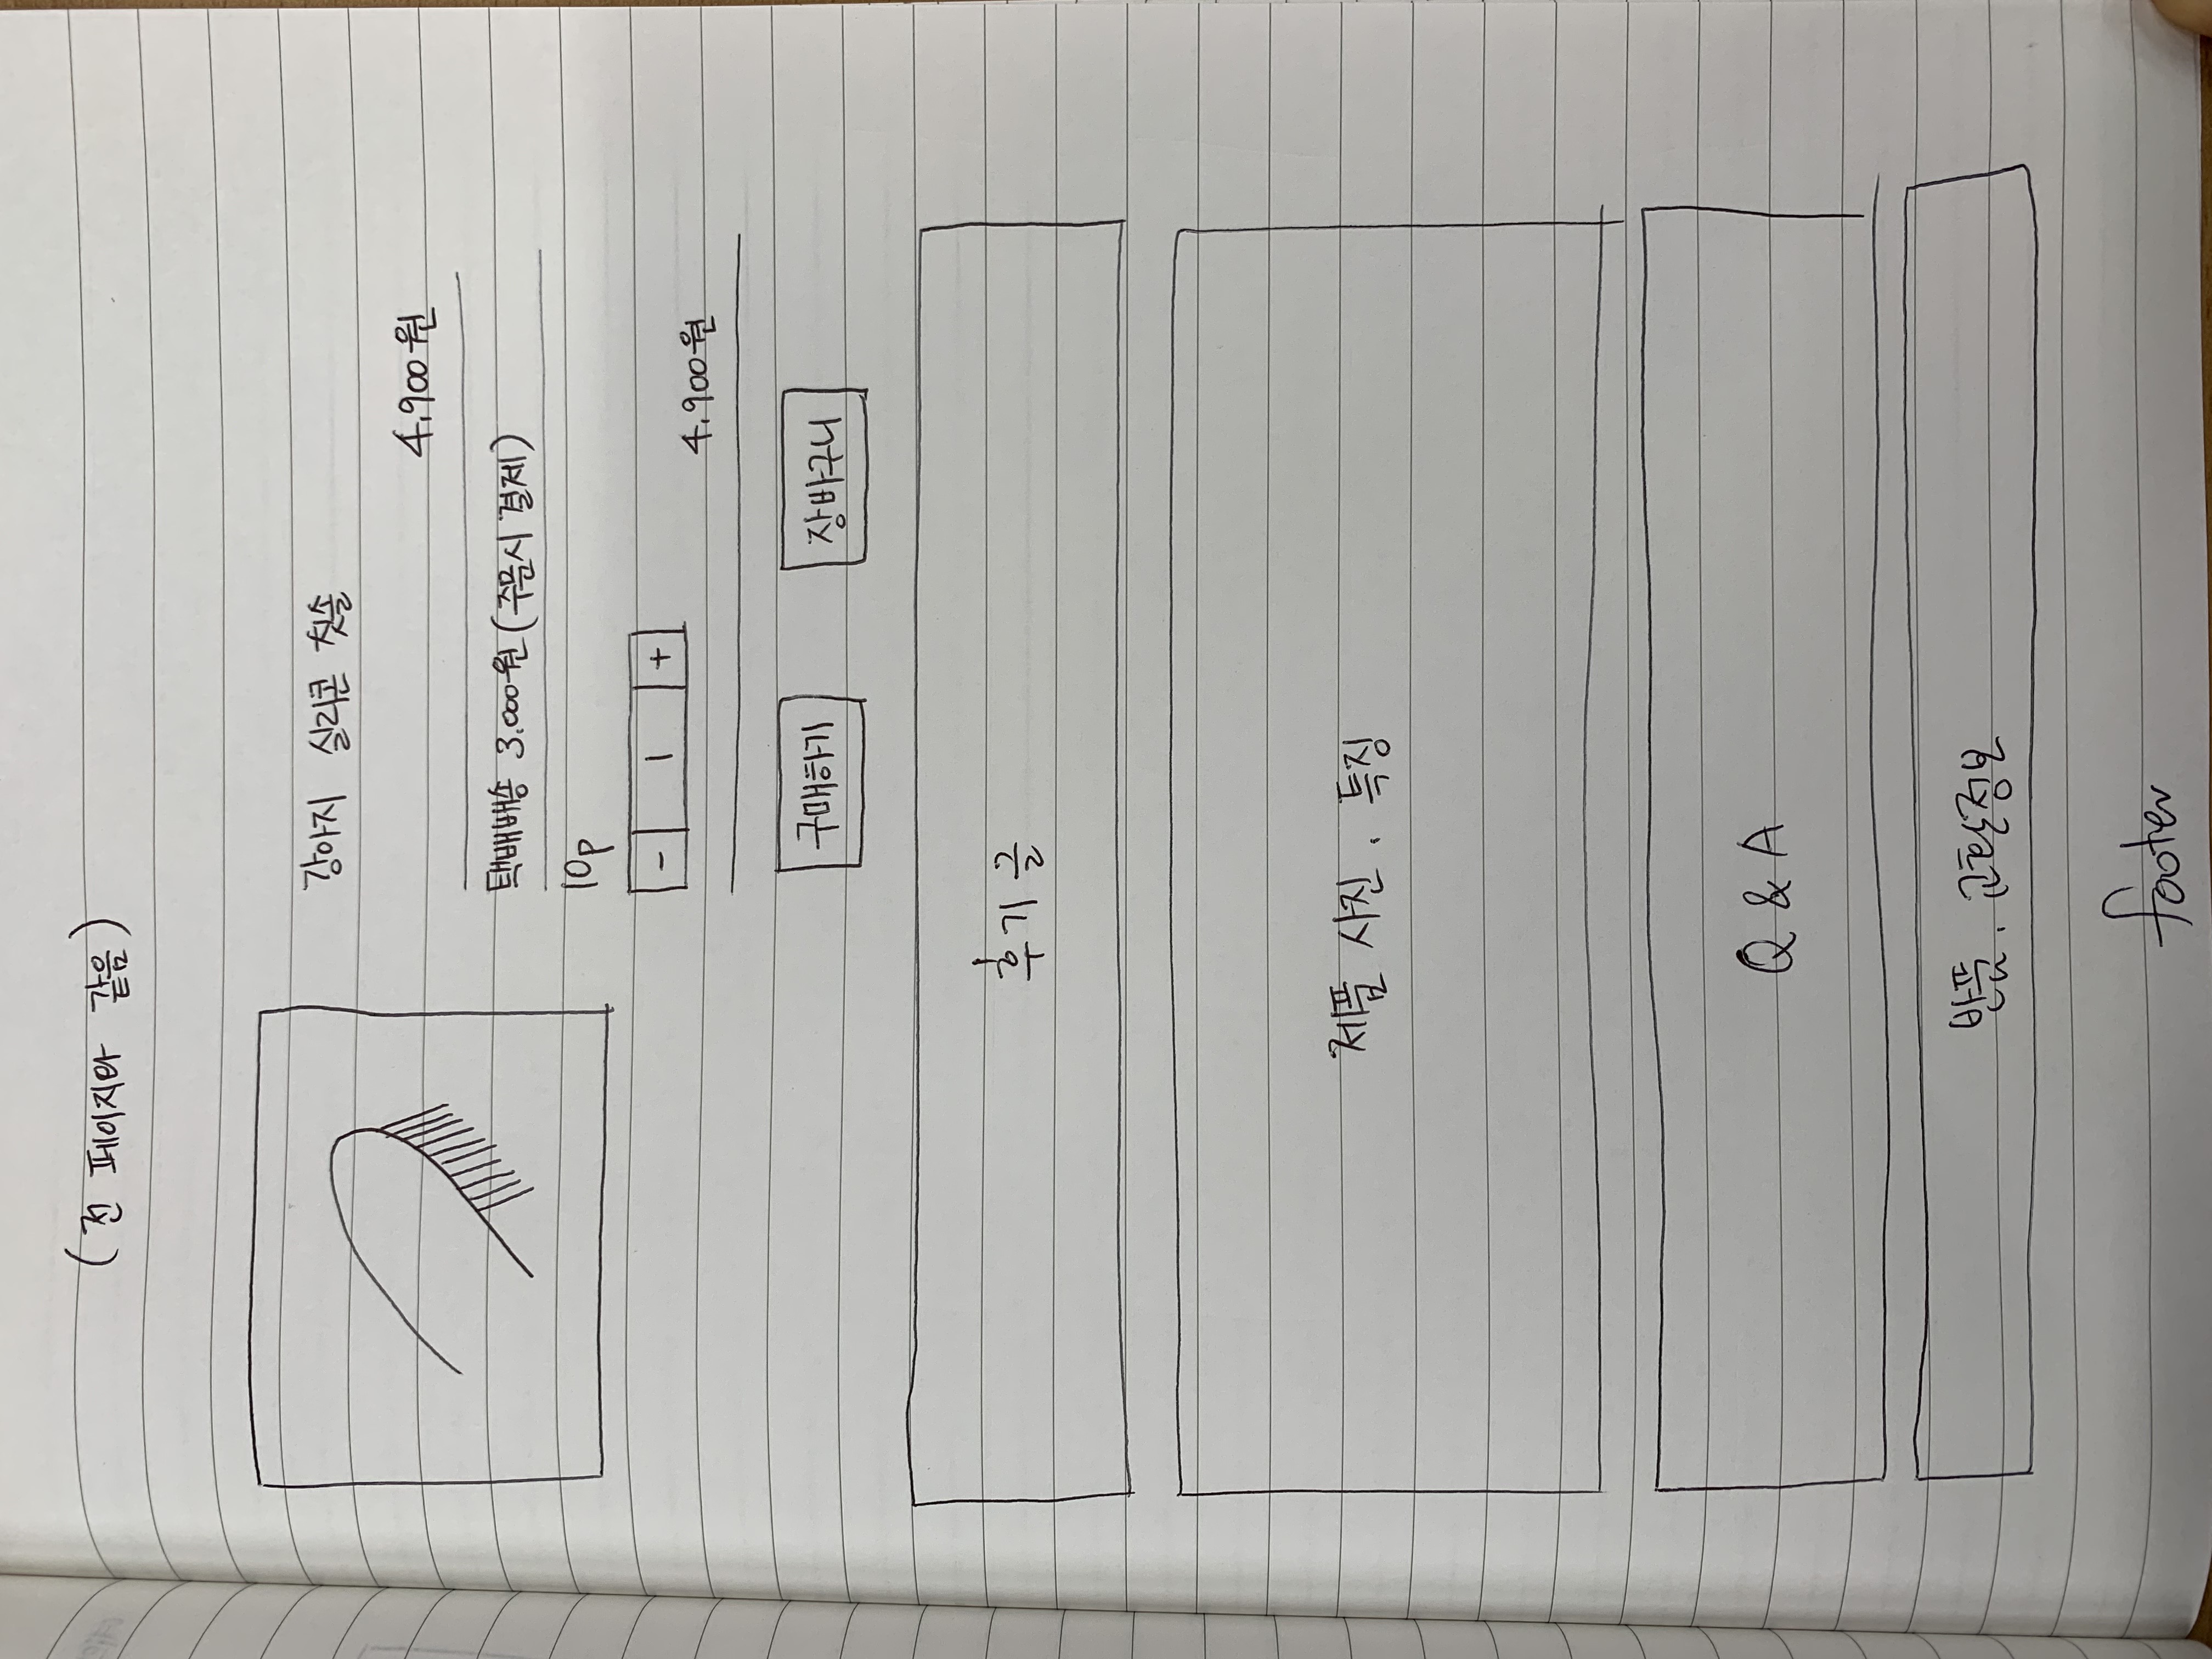 (전 페이지와 같음)
강아지 실리콘 칫솔
4,900원
택배배송 3,000원 (주문시 결제)
10p
- 1 +
4,900원
구매하기 장바구니
후기글
제품 사진, 특징
Q & A
반품, 교환정보
footer